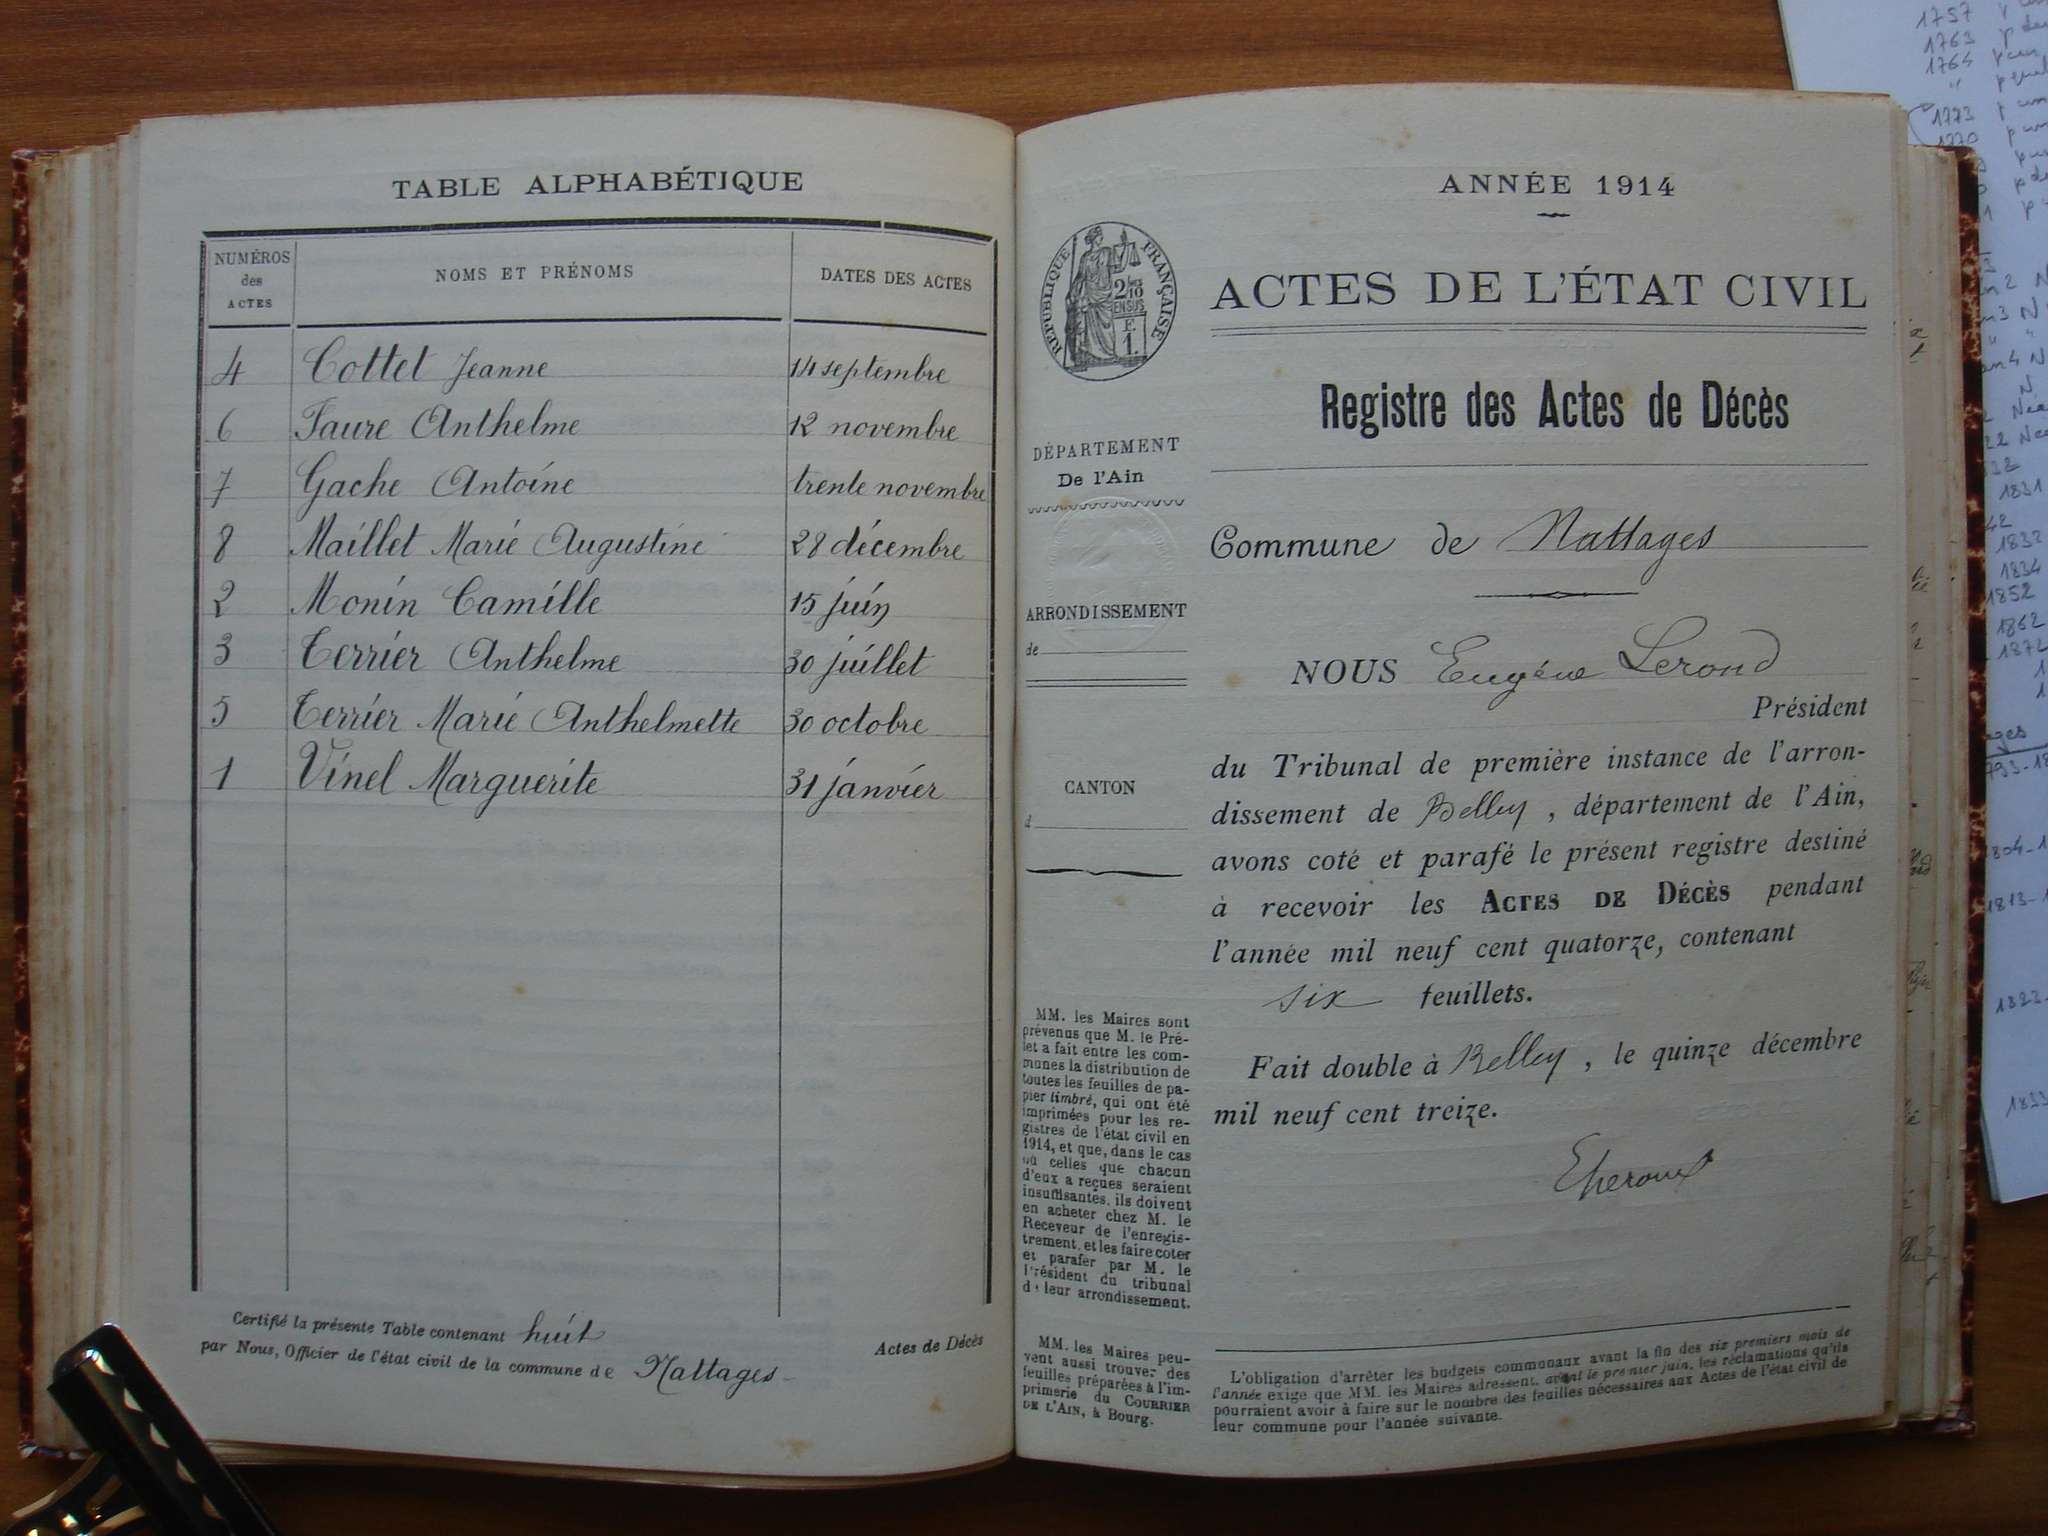 TABLE ALPHABÉTIQUE
NUMÉROS des ACTES NOMS ET PRÉNOMS DATES DES ACTES
4 Cottet Jeanne 14 septembre
6 Faure Anthelme 12 novembre
7 Gache Antoine trente novembre
8 Maillet Marie Augustine 28 décembre
2 Monin Camille 15 juin
3 Terrier Anthelme 30 juillet
5 Terrier Marie Anthelmette 30 octobre
1 Vinel Marguerite 31 janvier
Certifié la présente Table contenant huit Actes de Décès
par Nous, Officier de l'état civil de la commune de Nattages
ANNÉE 1914
RÉPUBLIQUE FRANÇAISE
2/10
EN SUS
F.
1.
ACTES DE L'ÉTAT CIVIL
Registre des Actes de Décès
DÉPARTEMENT
De l'Ain
ARRONDISSEMENT
de
CANTON
d
MM. les Maires sont
prévenus que M. le Pré-
fet a fait entre les com-
munes la distribution de
toutes les feuilles de pa-
pier timbré, qui ont été
imprimées pour les re-
gistres de l'état civil en
1914, et que, dans le cas
où celles que chacun
d'eux a reçues seraient
insuffisantes, ils doivent
en acheter chez M. le
Receveur de l'enregis-
trement, et les faire coter
et parafer par M. le
Président du tribunal
de leur arrondissement.
MM. les Maires peu-
vent aussi trouver des
feuilles préparées à l'im-
primerie du COURRIER
DE L'AIN, à Bourg.
Commune de Nattages
NOUS Eugène
Président
du Tribunal de première instance de l'arron-
dissement de Belley, département de l'Ain,
avons coté et parafé le présent registre destiné
à recevoir les ACTES DE DÉCÈS pendant
l'année mil neuf cent quatorze, contenant
six feuillets.
Fait double à Belley, le quinze décembre
mil neuf cent treize.
L'obligation d'arrêter les budgets communaux avant la fin des six premiers mois de
l'année exige que MM. les Maires adressent, avant le premier juin, les réclamations qu'ils
pourraient avoir à faire sur le nombre des feuilles nécessaires aux Actes de l'état civil de
leur commune pour l'année suivante.
1757
1763
1764
1773
1831
1832
1834
1852
1862
1872